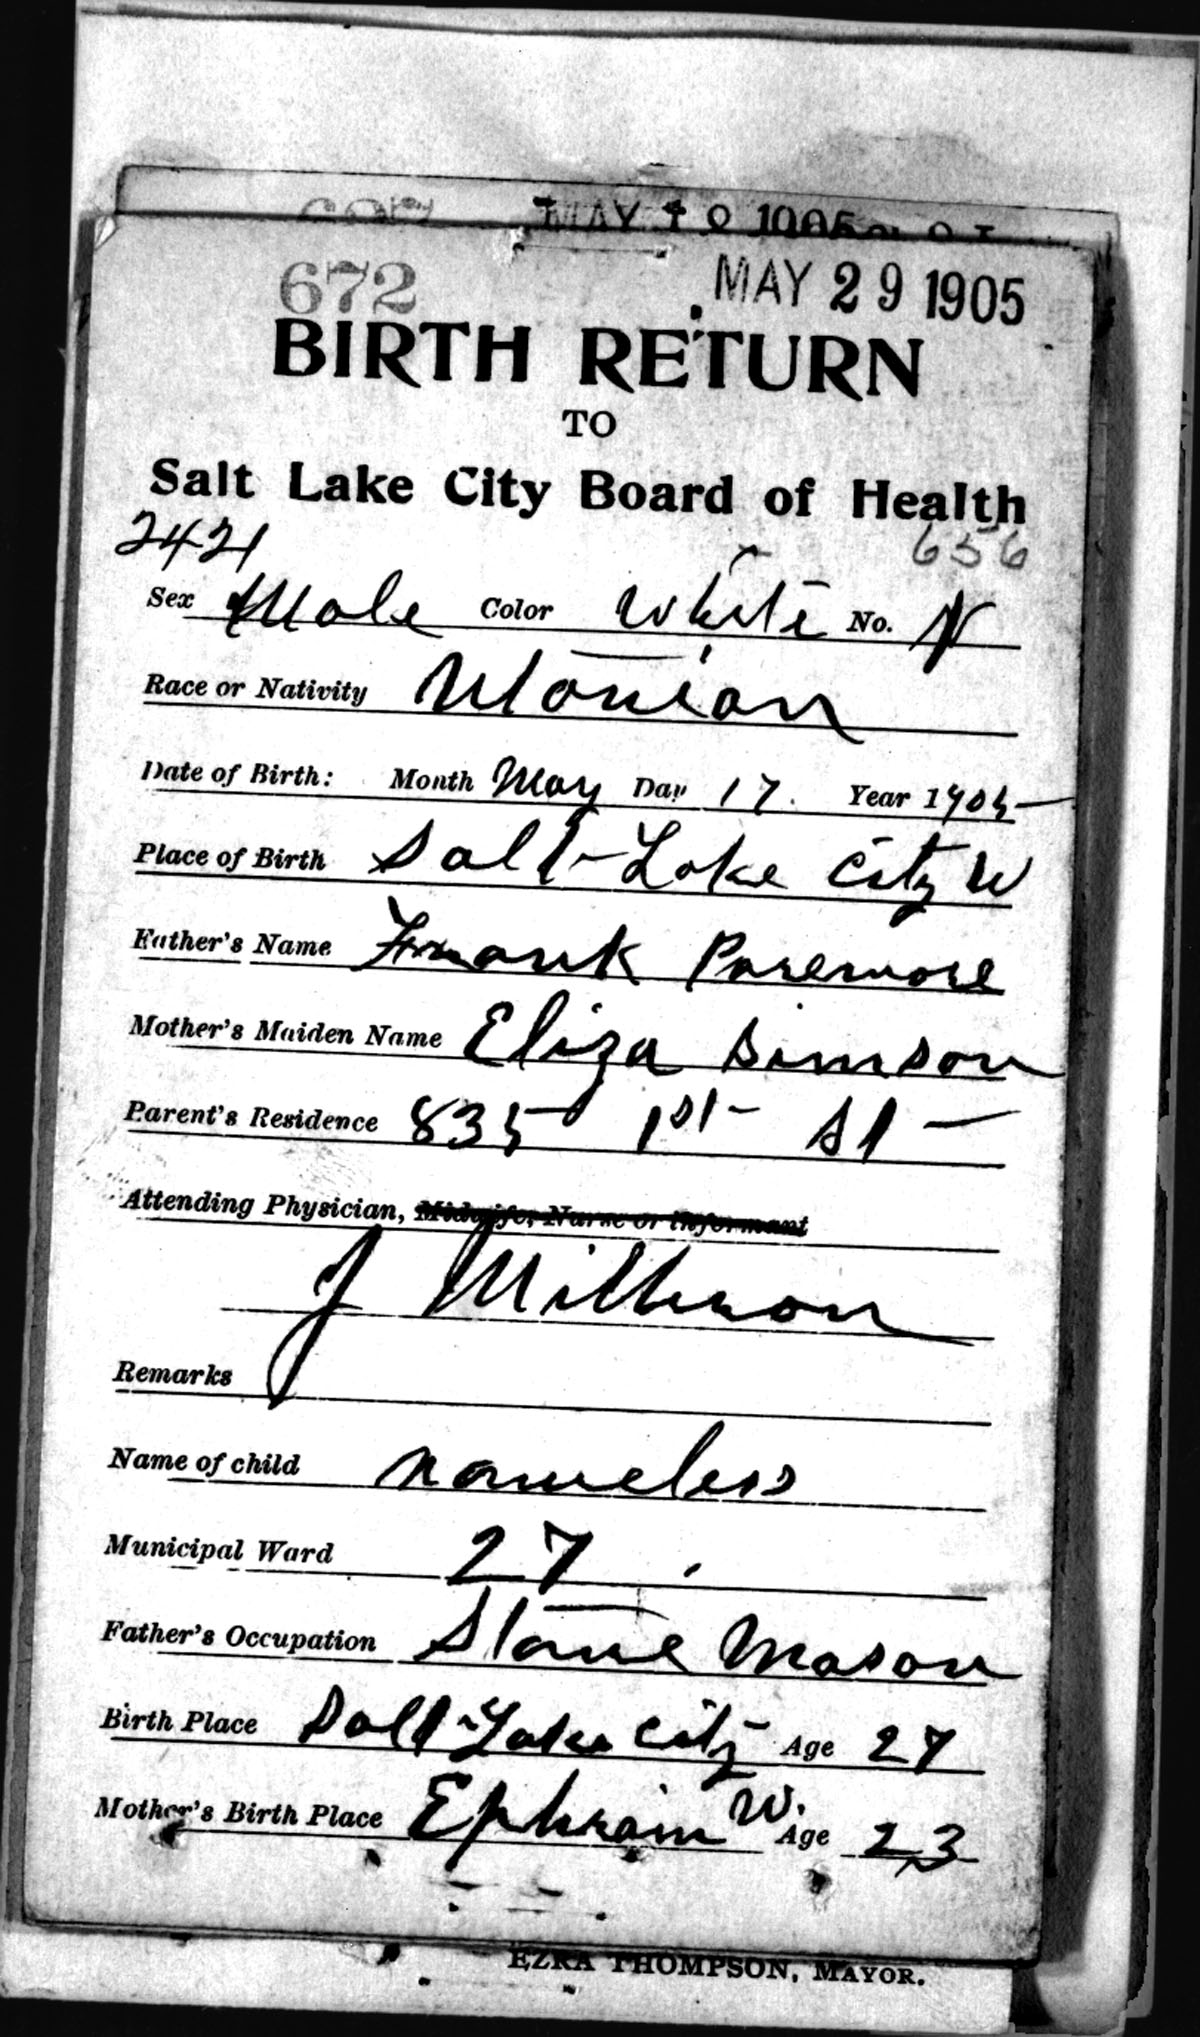 MAY 1905
672 MAY 29 1905
BIRTH RETURN
TO
Salt Lake City Board of Health
2421 656
Sex Male Color White No. N
Race or Nativity
Date of Birth: Month May Day 17. Year 1905
Place of Birth Salt Lake City U
Father's Name Frank Paremore
Mother's Maiden Name Eliza Simson
Parent's Residence 835 1st St
Attending Physician, Midwife, Nurse or Informant
J
Remarks
Name of child nameless
Municipal Ward 27
Father's Occupation Stone Mason
Birth Place Salt Lake City Age 27
Mother's Birth Place Ephraim U. Age 23
EZRA THOMPSON, MAYOR.